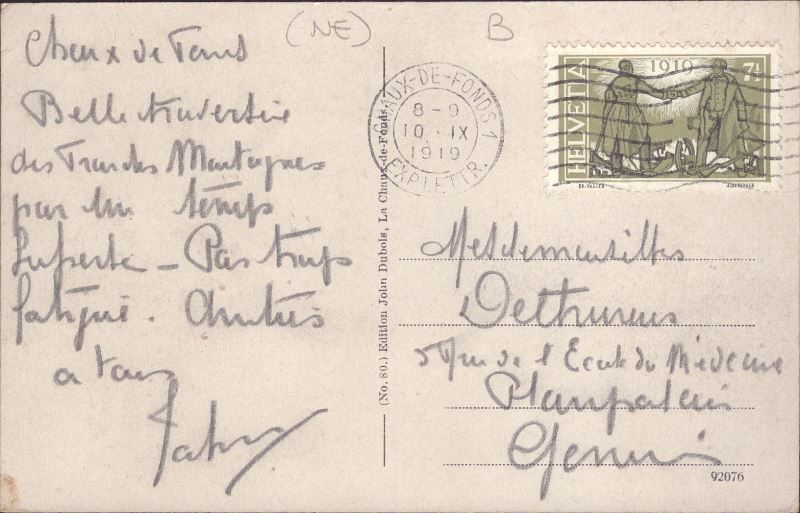 (NE)
B
Chaux de Fonds
Belle traversée
des Montagnes
par un temps
superbe - Pas trop
fatigué.
a tous
CHAUX-DE-FONDS 1
8-9
10.IX
1919
EXP. LETTR.
HELVETIA
1919
7½
(No. 80.) Edition John Dubois, La Chaux-de-Fonds
Mesdemoiselles
rue de l'Ecole de Médecine
Plainpalais
Genève
92076